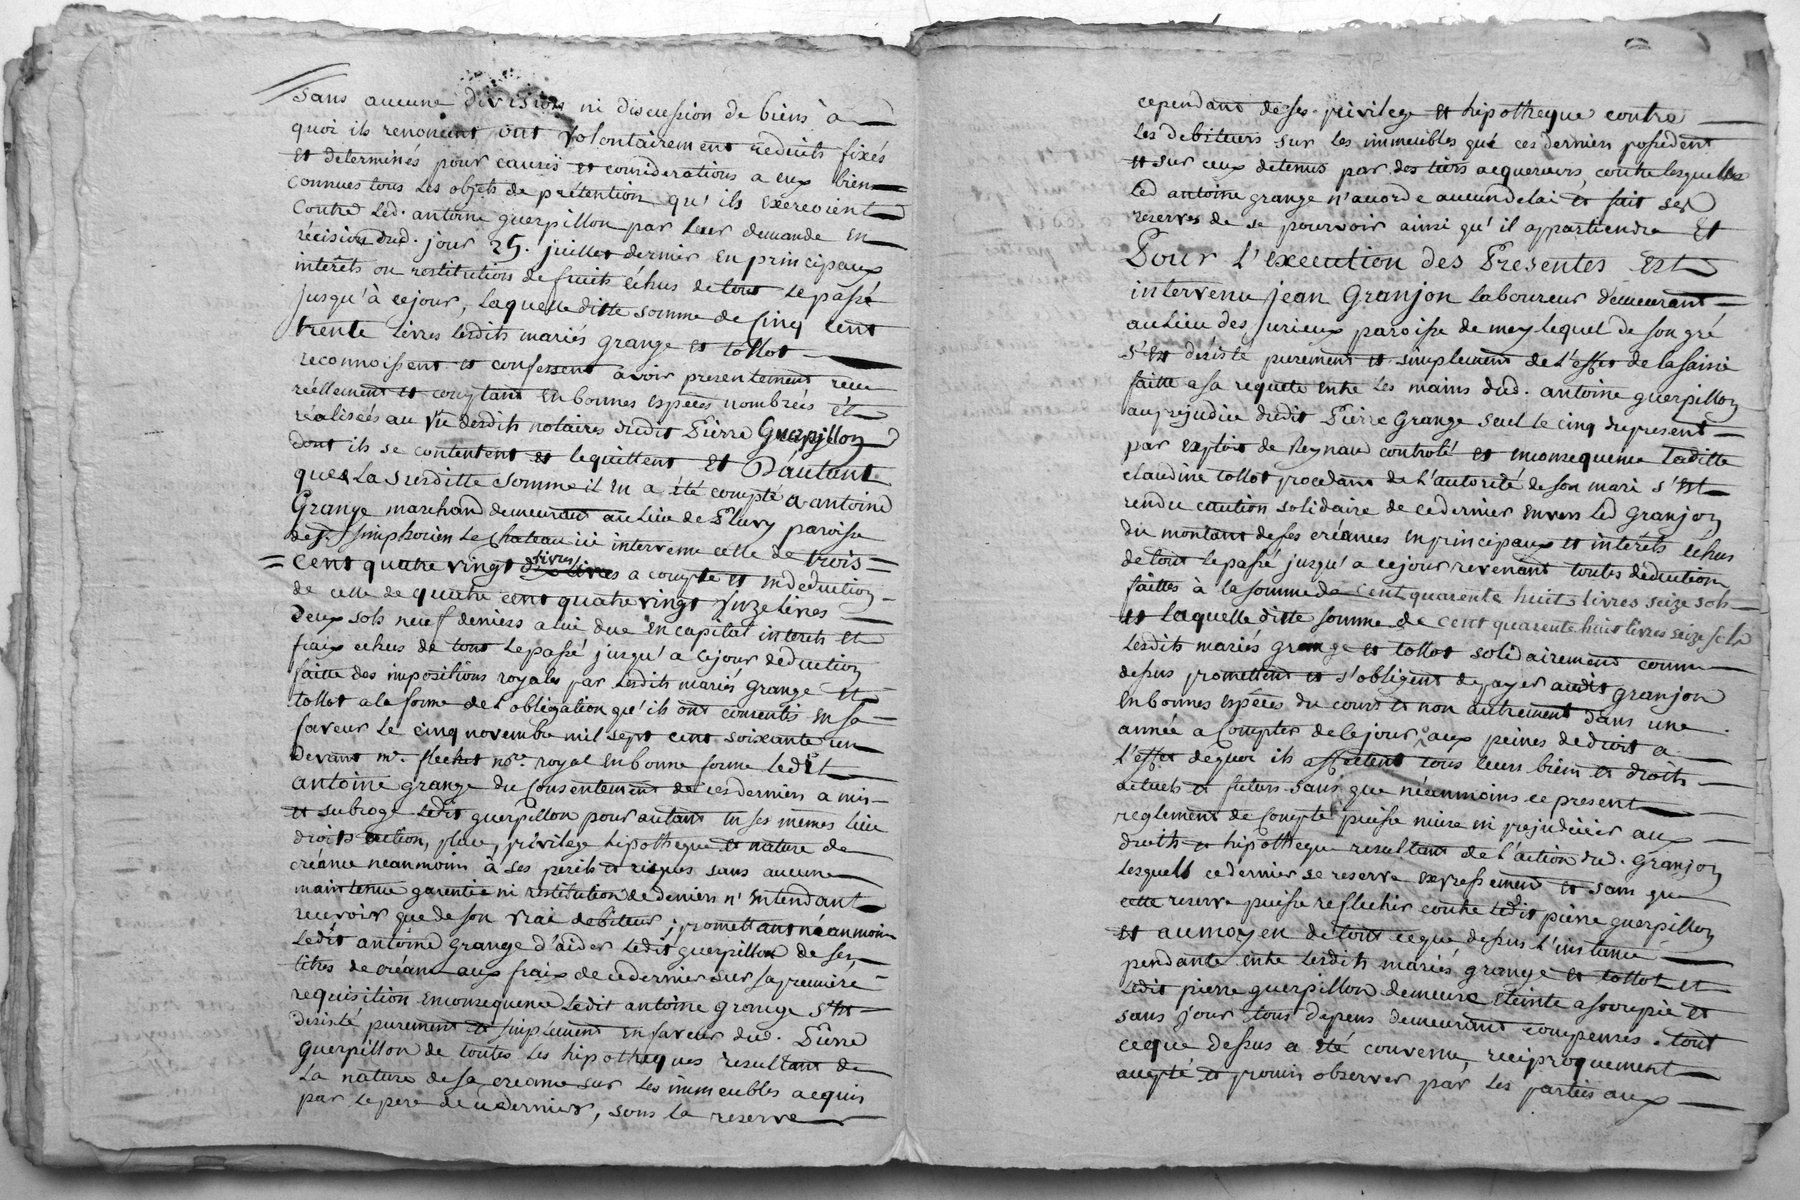 sans aucune division ni discussion de biens à
quoi ils renoncent ont volontairement reduits fixés
et determinés pour causes et considerations a eux bien
connues tous les objets de prétention qu'ils exercoient
contre led. antoine guerpillon par leur demande en
récision dud. jour 25. juillet dernier en principaux
interêts ou restitution de fruits échus de tout le passé
jusqu'à ce jour, laquelle ditte somme de cinq cent
trente livres lesdits mariés grange et tollot
reconnoissent et confessent avoir presentement recu
réellement et comptant en bonnes espèces nombrées et
réalisées au vû desdits notaires dudit Pierre Guerpillon
dont ils se contentent et le quittent et D'autant
que la susditte somme il en a été compté a antoine
Grange marchand demeurant au lieu de Pluvy paroisse
de st. simphorien le chateau ici intervenu celle de trois
cent quatre vingt livres a compte et en deduction
de celle de quatre cent quatre vingt livres
deux sols neuf deniers a lui due en capital interets et
fraix echus de tout le passé jusqu'a ce jour deduction
faitte des impositions royales par lesdits mariés grange et
tollot a la forme de l'obligation qu'ils ont consentis en sa
faveur le cinq novembre mil sept cent soixante un
devant me. flechet nore. royal en bonne forme ledit
antoine grange du consentement de ces derniers a mis
et subrogé ledit guerpillon pour autant en ses mêmes lieu
droits action, place, privilege hipotheque et nature de
créance neanmoins à ses perils et risques sans aucune
maintenue garentie ni restitution de deniers n'entendant
recevoir que de son vrai debiteur, promettant néanmoins
ledit antoine grange d'aider ledit guerpillon de ses
titres de créance aux fraix de ce dernier sur sa premiere
requisition en consequence ledit antoine grange s'est
desisté purement et simplement en faveur dud. Pierre
guerpillon de toutes les hipotheques resultant de
la nature de sa creance sur les immeubles acquis
par le pere de ce dernier, sous la reserve
cependant de ses privilege et hipotheque contre
les debiteurs sur les immeubles que ces derniers possedent
et sur ceux detenus par des tiers acquereurs, contre lesquels
led antoine grange n'accorde aucun delai et fait ses
reserves de se pourvoir ainsi qu'il appartiendra Et
Pour L'execution des Presentes Est
intervenu jean Granjon laboureur demeurant
au lieu des jurieux paroisse de mey lequel de son gré
s'est désisté purement et simplement de l'effet de la saisie
faitte a sa requete entre les mains dud. antoine guerpillon
au prejudice dudit Pierre Grange seul le cinq du present
par exploit de Reynaud controlé et en consequence laditte
claudine tollot procedant de l'autorité de son mari s'est
rendu caution solidaire de ce dernier envers led Granjon
du montant de ses créances en principaux et intérêts echus
de tout le passé jusqu'a ce jour revenant toutes deductions
faittes à la somme de cent quarente huit livres seize sols
et laquelle ditte somme de cent quarente huit livres seize sols
lesdits mariés grange et tollot solidairement comme
dessus promettent et s'obligent de payer audit granjon
en bonnes espèces du cours et non autrement dans une
année a compter de ce jour aux peines de droit a
l'effet de quoi ils affectent tous leurs biens et droits
actuels et futurs sans que néanmoins ce present
reglement de compte puisse nuire ni prejudicier aux
droits et hipotheque resultant de l'action dud. Granjon
lesquels ce dernier se reserve expressement et sans que
cette reserve puisse reflechir contre ledit pierre guerpillon
et au moyen de tout ce que dessus l'instance
pendante entre lesdits mariés grange et tollot et
ledit pierre guerpillon demeure éteinte assoupie et
sans jour tous depens demeurant compensés. tout
ce que dessus a été convenu, reciproquement
accepté et promis observer par les parties aux